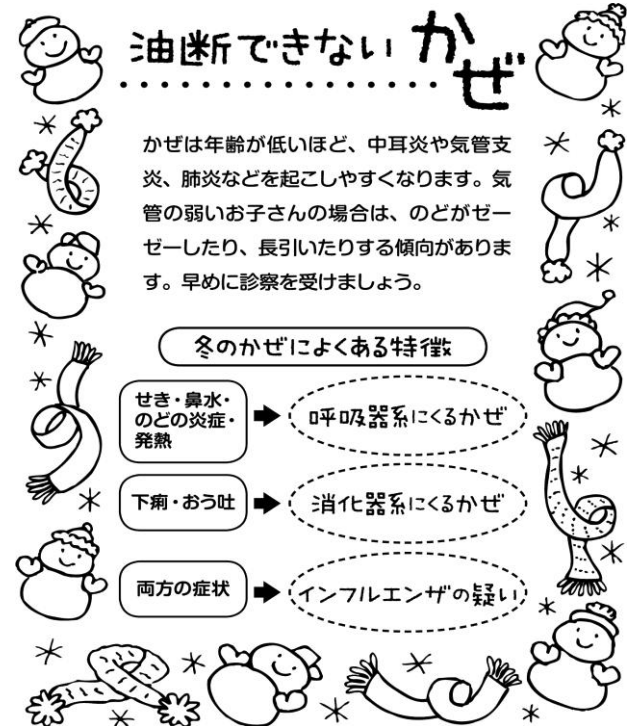 油断できない かぜ
かぜは年齢が低いほど、中耳炎や気管支
炎、肺炎などを起こしやすくなります。気
管の弱いお子さんの場合は、のどがゼー
ゼーしたり、長引いたりする傾向がありま
す。早めに診察を受けましょう。
冬のかぜによくある特徴
せき・鼻水・
のどの炎症・
発熱
呼吸器系にくるかぜ
下痢・おう吐
消化器系にくるかぜ
両方の症状
インフルエンザの疑い